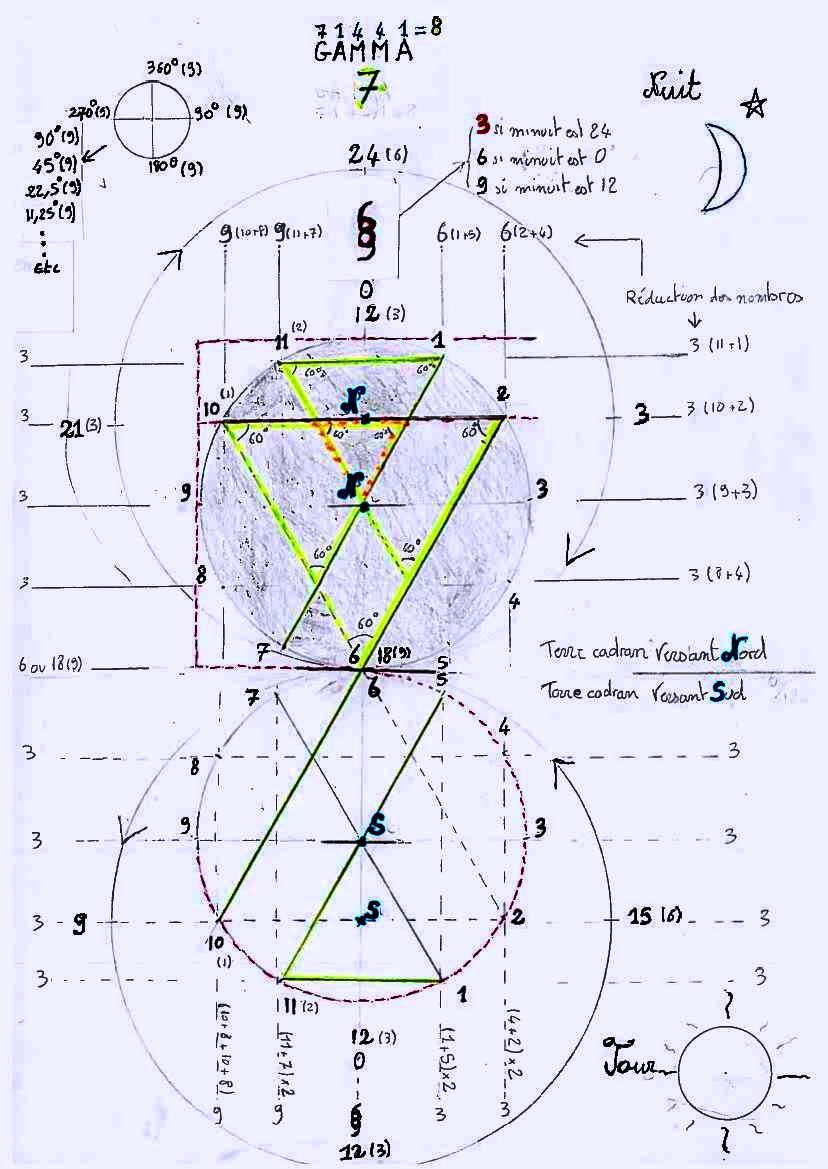 7 1 4 4 1 = 8
GAMMA
7
360°(9)
270°(9)
90° (9)
180° (9)
90°(9)
45°(9)
22,5°(9)
11,25°(9)
Etc
Nuit
3 si minuit est 24
6 si minuit est 0
9 si minuit est 12
24 (6)
9 (10+8)
9 (11+7)
6 (1+5)
6 (2+4)
0
12 (3)
Réduction des nombres
3
11 (2)
1
3 (11+1)
3
21 (3)
10 (1)
N
2
3
3 (10+2)
60°
60°
60°
60°
60°
3
9
N
3
3 (9+3)
60°
60°
3
8
4
3 (8+4)
60°
7
6
18(9)
5
6 ou 18(9)
Terre cadran Versant Nord
Terre cadran Versant Sud
7
6
5
4
3
8
3
3
9
S
3
3
3
9
10
(1)
S
2
15 (6)
3
3
11 (2)
1
3
12 (3)
0
(10+8+10+8)
(11+7)x2
(1+5)x2
(4+2)x2
9
9
3
3
12 (3)
Jour